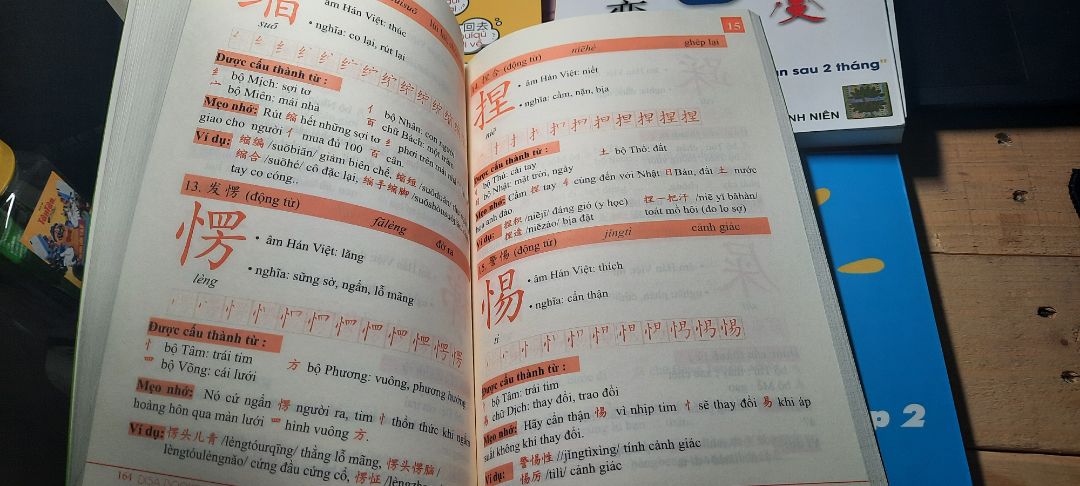 缩
âm Hán Việt: thúc
suō
• nghĩa: co lại, rút lại
Được cấu thành từ :
纟 bộ Mịch: sợi tơ
宀 bộ Miên: mái nhà
亻 bộ Nhân: con người
百 chữ Bách: một trăm
Mẹo nhớ: Rút 缩 hết những sợi tơ 纟 phơi trên mái nhà
giao cho người 亻 mua đủ 100 百 cân.
Ví dụ: 缩编 /suōbiān/ giảm biên chế, 缩短
缩合 /suōhé/ cô đặc lại, 缩手缩脚
tay co cóng..
13. 发愣 (động từ) fālèng đờ ra
愣
• âm Hán Việt: lăng
lèng
• nghĩa: sững sờ, ngẩn, lỗ mãng
Được cấu thành từ :
忄 bộ Tâm: trái tim
罒 bộ Võng: cái lưới
方 bộ Phương: vuông, phương hướng
Mẹo nhớ: Nó cứ ngẩn 愣 người ra, tim 忄 thổn thức khi ngắm
hoàng hôn qua màn lưới 罒 hình vuông 方.
Ví dụ: 愣头儿青 /lèngtóurqīng/ thằng lỗ mãng, 愣头愣脑/
lèngtóulèngnǎo/ cứng đầu cứng cổ, 愣怔
164
15
14. 捏合 (động từ) niēhé ghép lại
捏
• âm Hán Việt: niết
• nghĩa: cầm, nặn, bịa
niē
Được cấu thành từ :
bộ Thủ: cái tay
土 bộ Thổ: đất
bộ Nhật: mặt trời, ngày
Mẹo nhớ: Cầm 捏 tay 扌 cùng đến với Nhật 日 Bản, đất 土 nước
hoa anh đào
Ví dụ: 捏积 /niējī/ đánh gió (y học)
捏一把汗 /niē yī bǎhàn/
捏造 /niēzào/ bịa đặt
toát mồ hôi (do lo sợ)
15. 警惕 (động từ) jǐngtì cảnh giác
惕
• âm Hán Việt: thích
• nghĩa: cẩn thận
tì
Được cấu thành từ :
忄 bộ Tâm: trái tim
易 chữ Dịch: thay đổi, trao đổi
Mẹo nhớ: Hãy cẩn thận 惕 vì nhịp tim 忄 sẽ thay đổi 易 khi áp
suất không khí thay đổi.
Ví dụ: 警惕性 //jǐngtìxìng/ tính cảnh giác
惕厉 /tìlì/ cảnh giác
回去
n sau 2 tháng"
NH NIÊN
p 2